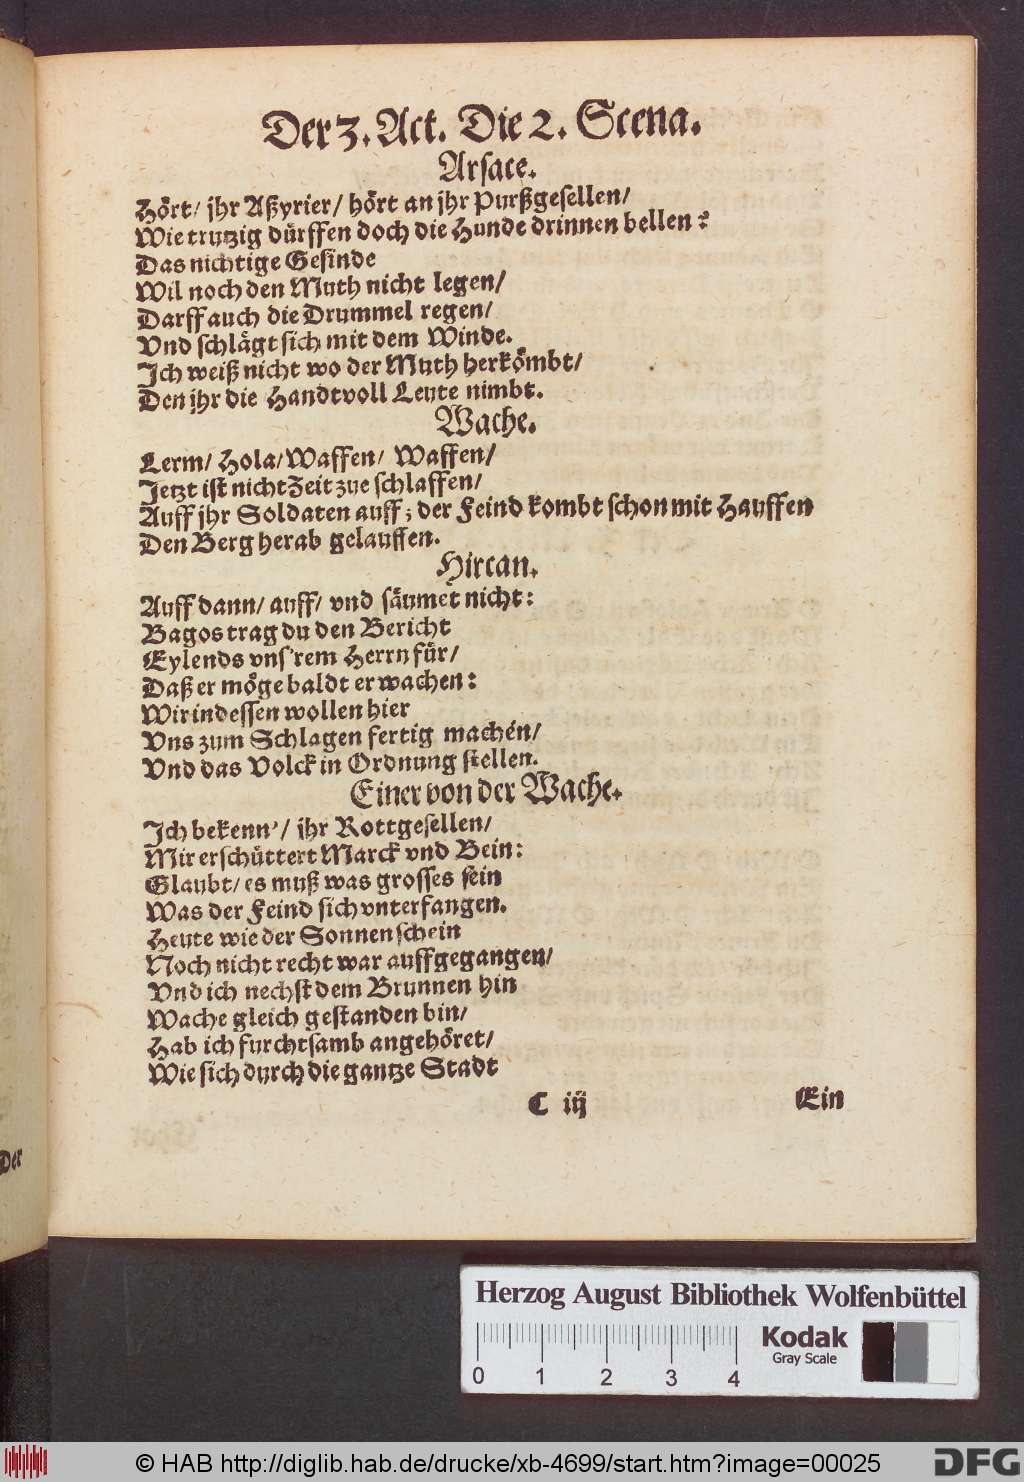 Der 3. Act. Die 2. Scena.
Arsace.
Hört/ jhr Aßyrier/ hört an jhr Purßgesellen/
Wie trutzig dürffen doch die Hunde drinnen bellen?
Das nichtige Gesinde
Wil noch den Muth nicht legen/
Darff auch die Drummel regen/
Vnd schlägt sich mit dem Winde.
Ich weiß nicht wo der Muth herkömbt/
Den jhr die Handtvoll Leute nimbt.
Wache.
Lerm/ Hola/ Waffen/ Waffen/
Jetzt ist nicht Zeit zue schlaffen/
Auff jhr Soldaten auff; der Feind kombt schon mit Hauffen
Den Berg herab gelauffen.
Hircan.
Auff dann/ auff/ vnd säumet nicht:
Bagos trag du den Bericht
Eylends vns'rem Herrn für/
Daß er möge baldt erwachen:
Wir indessen wollen hier
Vns zum Schlagen fertig machen/
Vnd das Volck in Ordnung stellen.
Einer von der Wache.
Ich bekenn'/ ihr Rottgesellen/
Mir erschüttert Marck vnd Bein:
Glaubt/ es muß was grosses sein
Was der Feind sich vnterfangen.
Heute wie der Sonnenschein
Noch nicht recht war auffgegangen/
Vnd ich nechst dem Brunnen hin
Wache gleich gestanden bin/
Hab ich furchtsamb angehöret/
Wie sich durch die gantze Stadt
C iij
Ein
Der
Herzog August Bibliothek Wolfenbüttel
Kodak
Gray Scale
0 1 2 3 4
© HAB http://diglib.hab.de/drucke/xb-4699/start.htm?image=00025
DFG